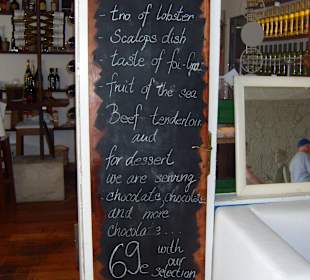 - trio of lobster
- Scalops dish
- taste of foi-Gras
fruit of the sea
Beef tenderloin
and
for dessert
we are serving
chocolate, chocolate
and more
chocolate...
69€ with
our
selection